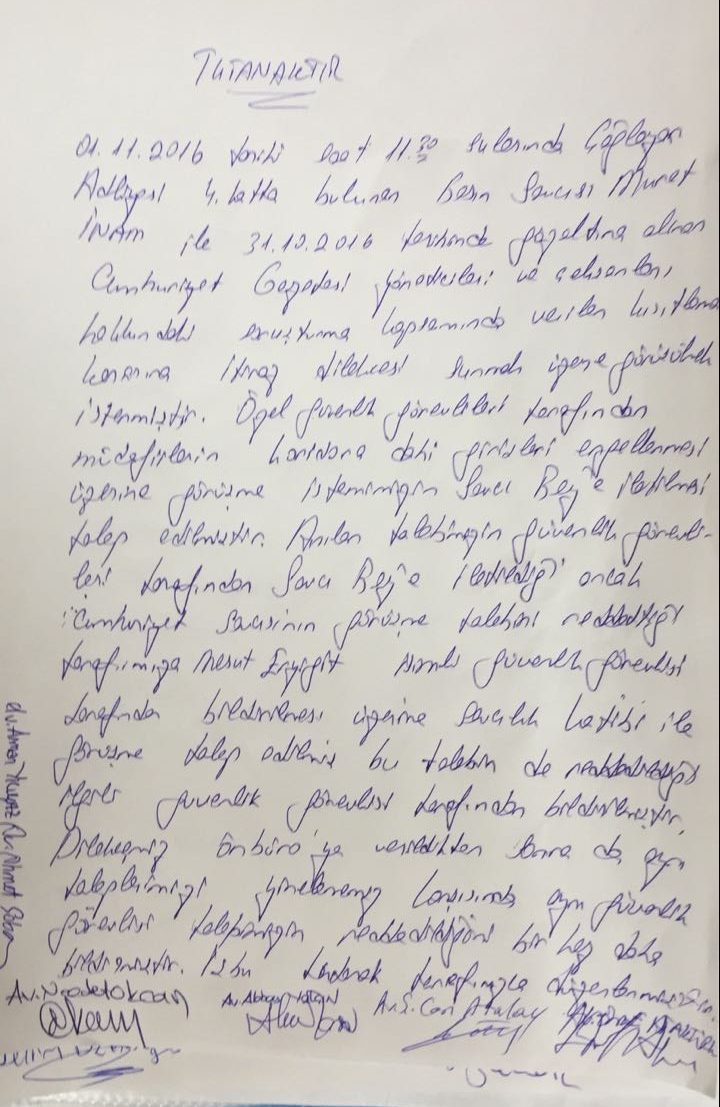 TUTANAKTIR
01.11.2016 tarihi saat 11.30 sularında Çağlayan
Adliyesi 4. katta bulunan Basın Savcısı Murat
İNAM ile 31.10.2016 tarihinde gözaltına alınan
Cumhuriyet Gazetesi yöneticileri ve çalışanları
hakkındaki soruşturma kapsamında verilen kısıtlama
kararına itiraz dilekçesi sunmak üzere görüşülmek
istenmiştir. Özel güvenlik görevlileri tarafından
müdafilerin koridora dahi girişleri engellenmesi
üzerine görüşme istemimizin Savcı Bey'e iletilmesi
talep edilmiştir. Anılan talebimizin güvenlik görevli-
leri tarafından Savcı Bey'e iletildiği ancak
Cumhuriyet Savcısının görüşme talebini reddettiği
tarafımıza Mesut Eryiğit isimli güvenlik görevlisi
tarafından bildirilmesi üzerine savcılık katibi ile
görüşme talep edilmiş bu talebin de reddedildiği
ilgili güvenlik görevlisi tarafından bildirilmiştir.
Dilekçemiz önbüro'ya verildikten sonra da aynı
taleplerimizi yinelememiz karşısında aynı güvenlik
görevlisi talebimizin reddedildiğini bir kez daha
bildirmiştir. İşbu tutanak tarafımızca
Av. Necdet Okcan
Av. Abbas Yalçın
Av. S. Can Atalay
Av. Ahmet